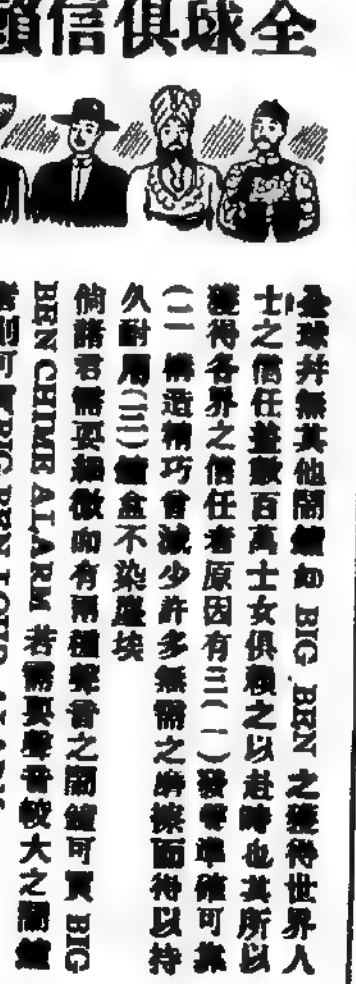 全球俱信賴
全球并無其他鬧鐘如 BIG BEN 之獲得世界人
士之信任蓋數百萬士女俱賴之以赴時也其所以
獲得各界之信任者原因有三(一)發聲準確可靠
(二)構造精巧曾減少許多無需之磨擦而得以持
久耐用(三)鐘盒不染塵埃
倘諸君需要細微而有兩種聲音之鬧鐘可買 BIG
BEN CHIME ALARM 若需要聲音較大之鬧鐘
則可買 BIG BEN LOUD ALARM